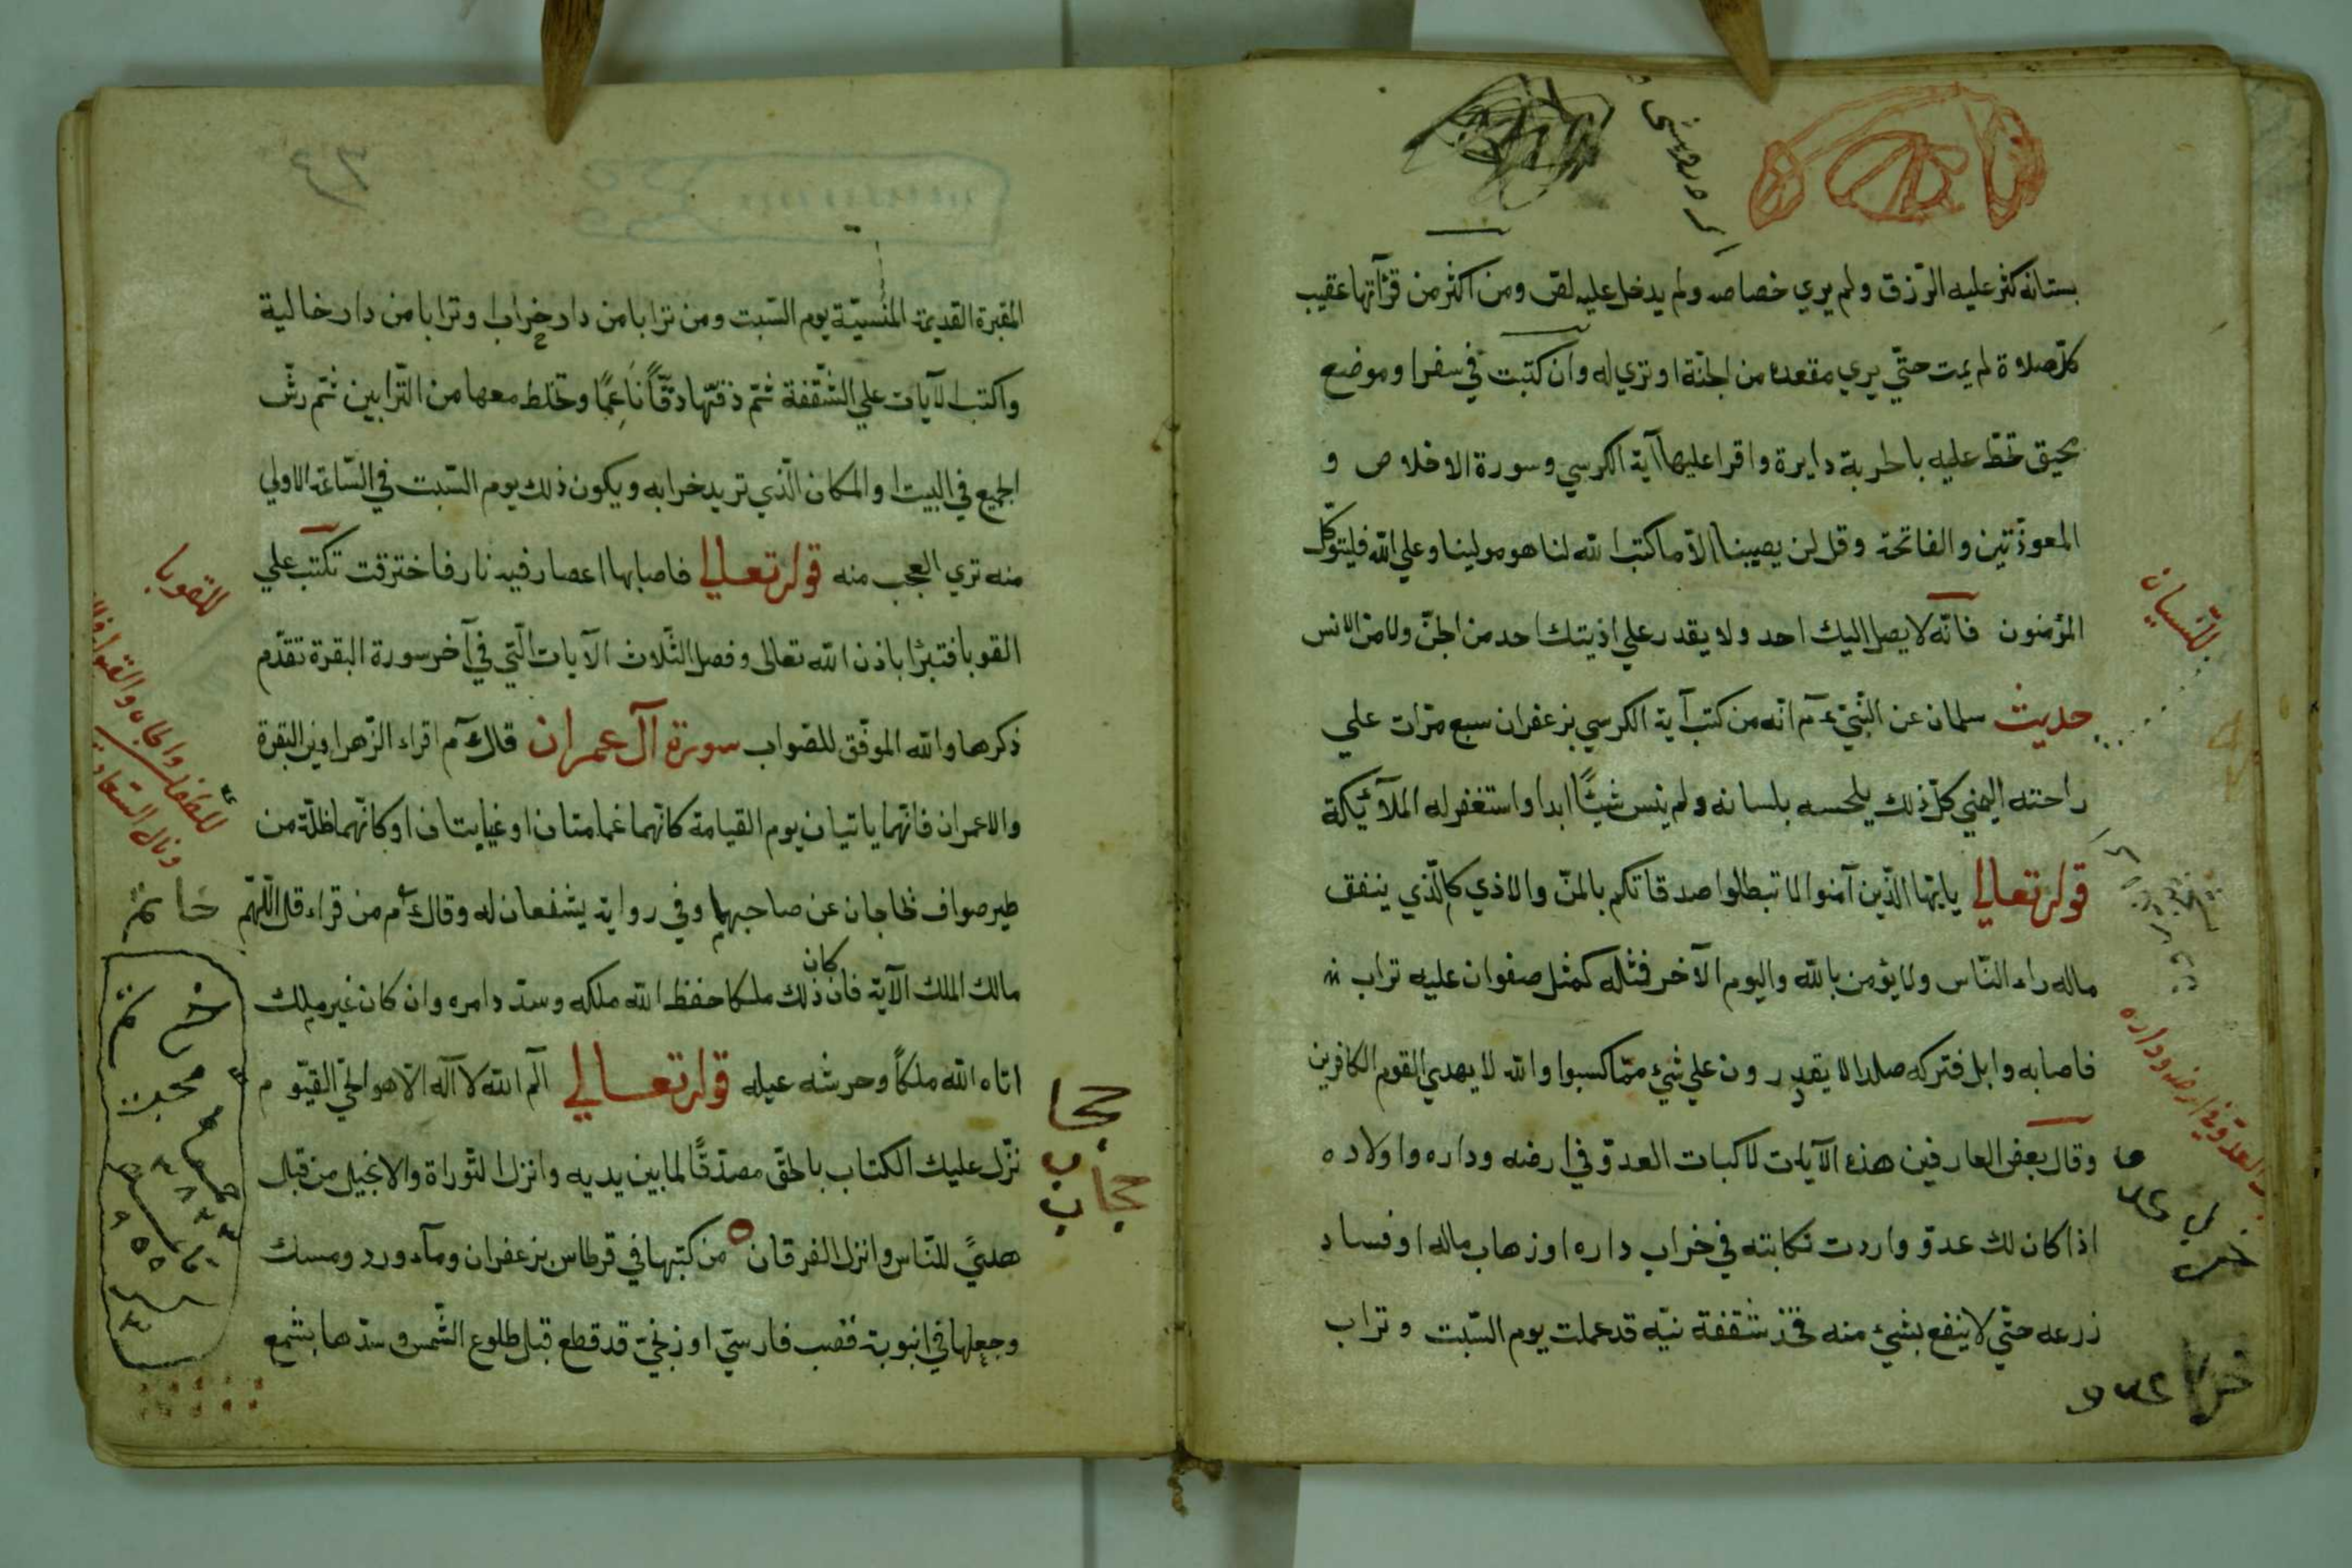 بستانه كثر عليه الرّزق ولم يري خصاصه ولم يدخل عليه لصّ ومن اكثر من قرآتها عقيب
كلّ صلاة لم يمت حتّي يري مقعده من الجنّة او تري له وان كتبت في سفر او موضع
تخطّ عليه بالحربة دايرة واقرا عليها آية الكرسي وسورة الاخلاص و
المعوذتين والفاتحة وقل لن يصيبنا الاّ ما كتب الله لنا هو مولينا وعلي الله فليتوكّل
المؤمنون فانّه لا يصل اليك احد ولا يقدر علي اذيتك احد من الجنّ ولا من الانس
حديث سلمان عن النّبيّ عم انّه من كتب آية الكرسي بزعفران سبع مرّات علي
راحته اليمني كلّ ذلك يلحسه بلسانه ولم ينس شيئًا ابدا واستغفر له الملآئيكة
قوله تعالي يايّها الّذين آمنوا لا تبطلوا صدقاتكم بالمنّ والاذي كالّذي ينفق
ماله راء النّاس ولا يؤمن بالله واليوم الآخر فمثله كمثل صفوان عليه تراب
فاصابه وابل فتركه صلدا لا يقدرون علي شيء ممّا كسبوا والله لا يهدي القوم الكافرين
وقال بعض العارفين هذه الآيات لاكبات العدوّ في ارضه وداره واولاده
اذا كان لك عدوّ واردت نكايته في خراب داره او زهاب ماله او فساد
زرعه حتّي لا ينفع بشيء منه فخذ شقفة نيّه قد عملت يوم السّبت وتراب
للنّسيان
العدوّ في ارضه وداره
المقبرة القديمة المنسيّة يوم السّبت ومن ترابا من دار خراب وترابا من دار خالية
واكتب الآيات علي الشّقفة ثمّ دقّها دقًّا ناعمًا وتخلط معها من التّرابين ثمّ رشّ
الجميع في البيت او المكان الّذي تريد خرابه ويكون ذلك يوم السّبت في السّاعة الاولي
منه تري العجب منه قوله تعالي فاصابها اعصار فيه نار فاخترقت تكتب علي
القوبا فتبرا باذن الله تعالى وفصل الثّلاث الآيات الّتي في آخر سورة البقرة تقدّم
ذكرها والله الموفّق للصّواب سورة آل عمران قال عم اقراء الزّهراوين البقرة
وال عمران فانّهما ياتيان يوم القيامة كانّهما غمامتان او غيايتان او كانّهما ظلّة من
طير صواف تحاجان عن صاحبهما وفي رواية يشفعان له وقال عم من قراء قل اللّهمّ
مالك الملك الآية فان كان ذلك ملكا حفظ الله ملكه وسدّد امره وان كان غير ملك
اتاه الله ملكاً وحرسه عيله قوله تعالي الم الله لا آله الاّ هو الحيّ القيّوم
نزّل عليك الكتاب بالحقّ مصدّقًا لما بين يديه وانزل التّوراة والانجيل من قبل
هديً للنّاس وانزل الفرقان من كتبها في قرطاس بزعفران ومآء ورد ومسك
وجعلها في انبوبة قصب فارسيّ او زنجيّ قد قطع قبل طلوع الشّمس وسدّها بشمع
للقوبا
حجا
ب
حجاب